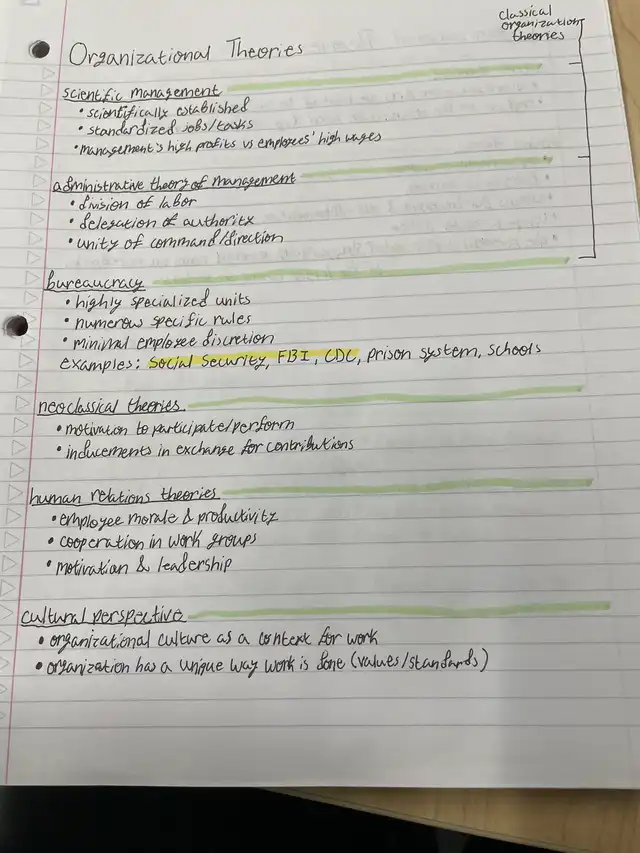 classical
organization
theories
Organizational Theories
scientific management
• scientifically established
• standardized jobs/tasks
• management's high profits vs employees' high wages
administrative theory of management
• division of labor
• delegation of authority
• unity of command/direction
bureaucracy
• highly specialized units
• numerous specific rules
• minimal employee discretion
examples: Social Security, FBI, CDC, prison system, schools
neoclassical theories
• motivation to participate/perform
• inducements in exchange for contributions
human relations theories
• employee morale & productivity
• cooperation in work groups
• motivation & leadership
cultural perspective
• organizational culture as a context for work
• organization has a unique way work is done (values/standards)